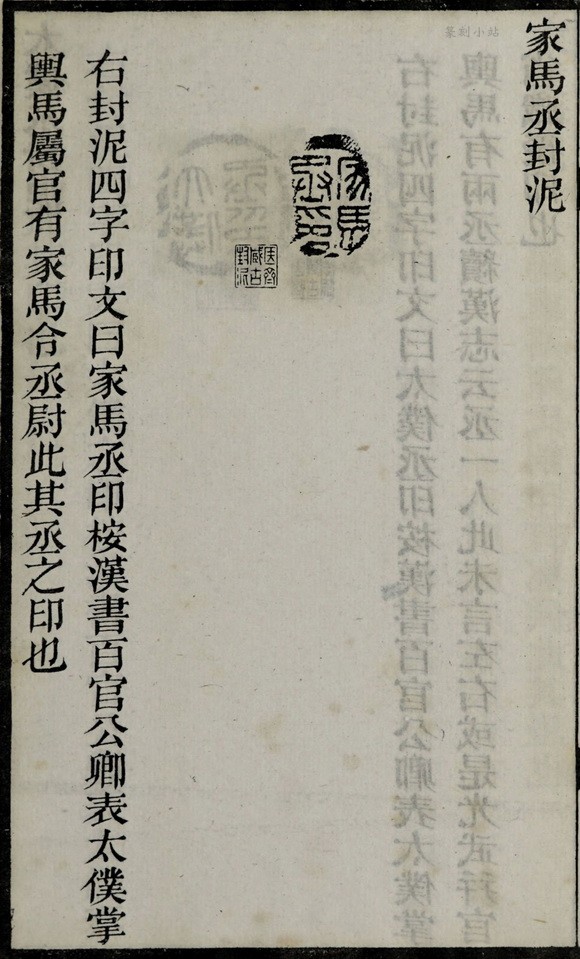 家馬丞封泥
家馬丞印
右封泥四字印文曰家馬丞印桉漢書百官公卿表太僕掌
輿馬屬官有家馬令丞尉此其丞之印也
篆刻小站